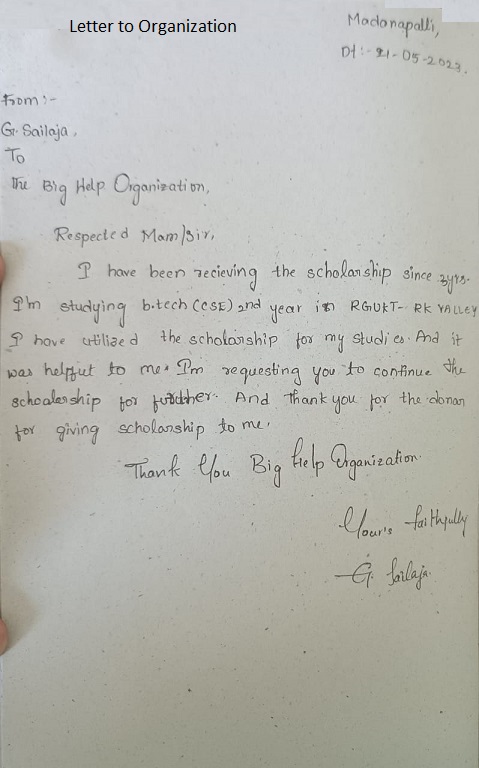 Letter to Organization
Madanapalli,
Dt:- 21-05-2023.
From:-
G. Sailaja.
To
The Big Help Organization,
Respected Mam/Sir,
I have been recieving the scholarship since 3yrs.
I'm studying b.tech (CSE) 2nd year in RGUKT- RK VALLEY
I have utilized the scholarship for my studies. And it
was helpful to me. I'm requesting you to continue the
schoalership for further. And thank you for the donar
for giving scholarship to me.
Thank You Big Help Organization.
Your's faithfully
G. Sailaja.